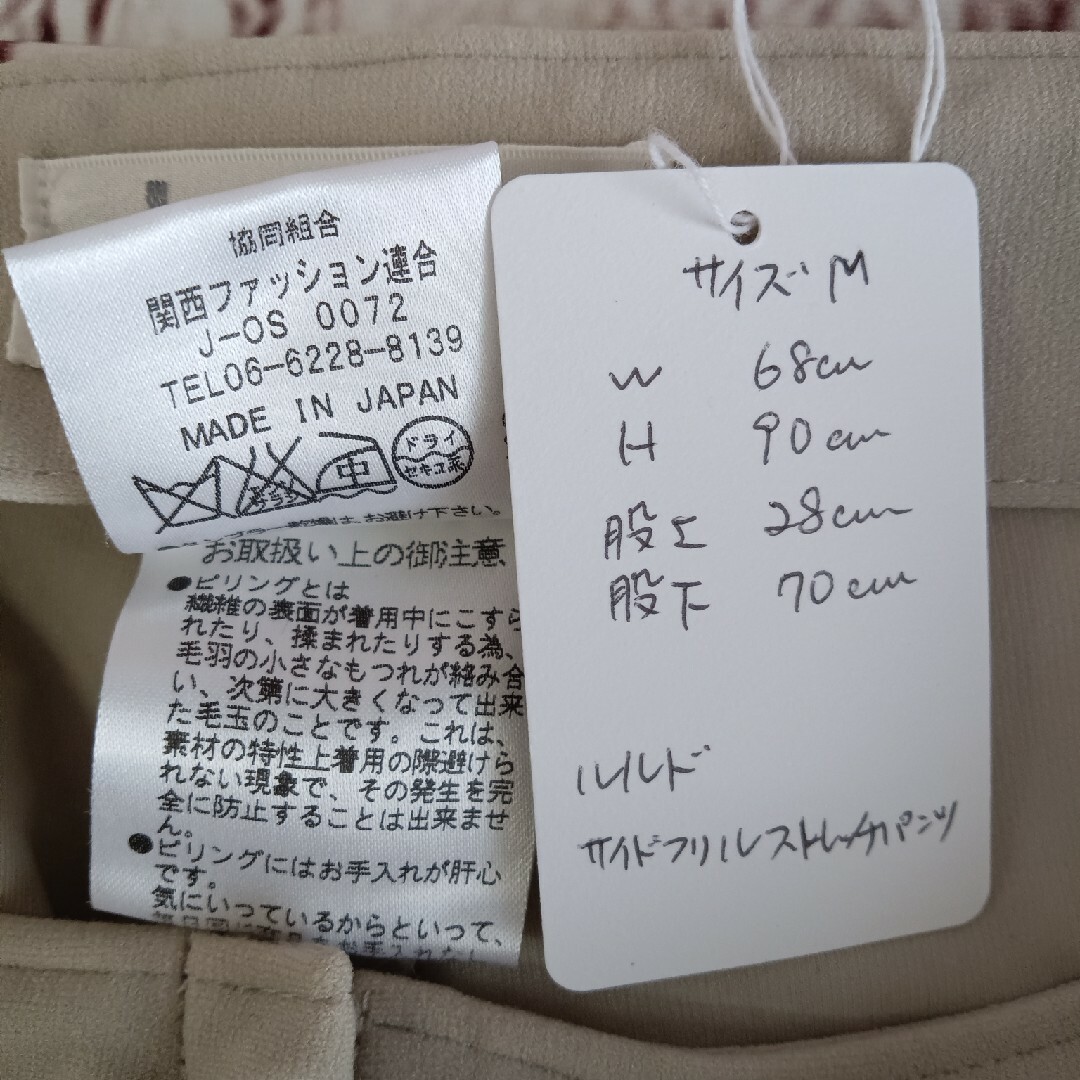 協同組合
関西ファッション連合
J-OS 0072
TEL06-6228-8139
MADE IN JAPAN
中
ドライ
セキユ系
お避け下さい。
お取扱い上の御注意
●ピリングとは
繊維の表面が着用中にこすら
れたり、揉まれたりする為、
毛羽の小さなもつれが絡み合
い、次第に大きくなって出来
た毛玉のことです。これは、
素材の特性上着用の際避けら
れない現象で、その発生を完
全に防止することは出来ませ
ん。
●ピリングにはお手入れが肝心
です。
気にいっているからといって、
サイズM
W 68cm
H 90cm
股上 28cm
股下 70cm
ルルド
サイドフリルストレッチパンツ